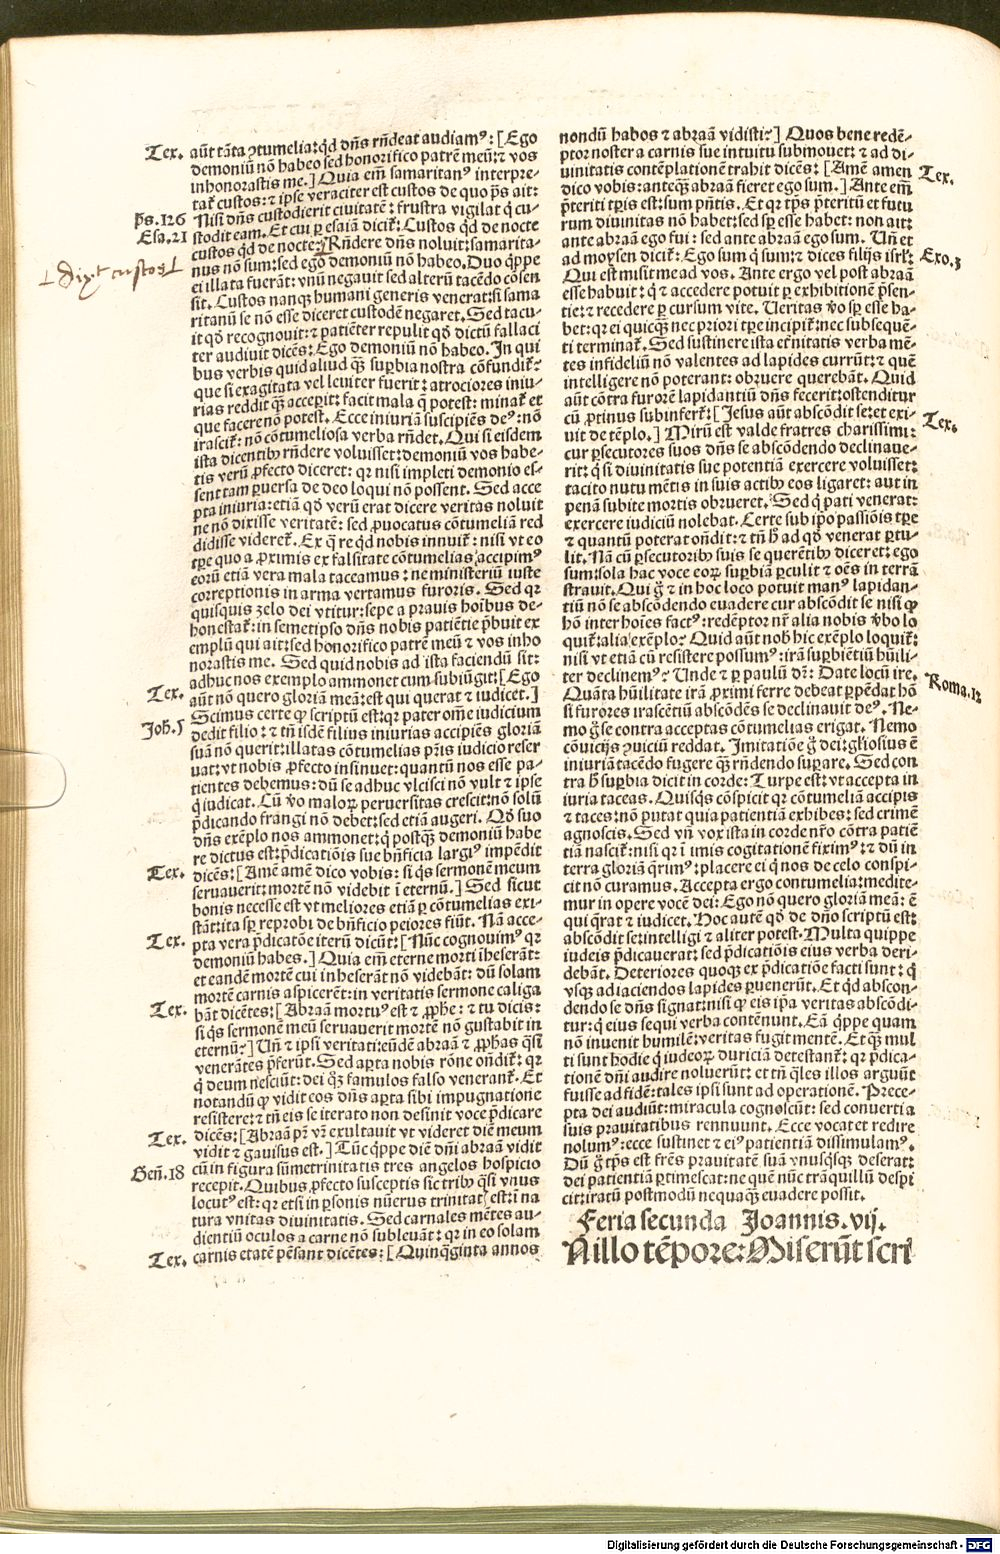 Tex.
aūt tāta ꝯtumelia: qd dn̄s rn̄deat audiamꝰ: [Ego
demoniū nō habeo sed honorifico patrē meū: ⁊ vos
inhonorastis me.] Quia em̄ samaritanꝰ interpre⸗
tat̄ custos: ⁊ ipse veraciter est custos de quo p̄s ait:
p̄s. 126
Nisi dn̄s custodierit civitatē: frustra vigilat q̇ cu⸗
Esa. 21
stodit eam. Et cui ꝑ esaiam dicit̄: Custos qd de nocte
custos qd de nocte: Rn̄dere dn̄s noluit: samarita⸗
dixit custos
nus nō sum: sed ego demoniū nō habeo. Duo q̇ppe
ei illata fuerāt: vnū negauit sed alterū tacēdo cōsen
sit. Custos nanqꝫ humani generis venerat: si sama
ritanū se nō esse diceret custodē negaret. Sed tacu⸗
it qd̓ recognouit: ⁊ patiēter repulit qd̓ dictū fallaci
ter audiuit dicēs: Ego demoniū nō habeo. In qui
bus verbis quid aliud qꝫ suꝑbia nostra cōfundit̄:
que si exagitata vel leuiter fuerit: atrociores iniu⸗
rias reddit qꝫ acceperit: facit mala q̄ potest: minat̄ et
que facere nō potest. Ecce iniuriā suscipiēs deꝰ: nō
irascit̄: nō cōtumeliosa verba rn̄det. Qui si eisdem
ista dicentibꝰ rn̄dere voluisset: demoniū vos habe⸗
tis verū ꝓfecto diceret: qꝛ nisi impleti demonio es⸗
sent tam ꝑuersa de deo loqui nō possent. Sed acce
pta iniuria: etiā qd̓ verū erat dicere veritas noluit
ne nō dixisse veritatē: sed ꝓuocatus cōtumeliā red
didisse videret̄. Ex q̄ re qd nobis innuit̄: nisi vt eo
tꝑe quo a ꝓximis ex falsitate cōtumelias accipimꝰ
eorū etiā vera mala taceamus: ne ministeriū iuste
correptionis in arma vertamus furoris. Sed qꝛ
quisquis zelo dei vtitur: sepe a prauis hoībus de⸗
honestat̄: in semetipso dn̄s nobis patiētie p̄buit ex
emplū qui ait: sed honorifico patrē meū ⁊ vos inho
norastis me. Sed quid nobis ad ista faciendū sit:
adhuc nos exemplo ammonet cum subiūgit: [Ego
Tex.
aūt nō quero gloriā meā: est qui querat ⁊ iudicet.]
Scimus certe ꝙ scriptū est: qꝛ pater om̄e iudicium
Joh. 5
dedit filio: ⁊ tn̄ isdē filius iniurias accipiēs gloriā
suā nō querit: illatas cōtumelias pr̄is iudicio reser
uat: vt nobis ꝓfecto insinuet: quantū nos esse pa⸗
tientes debemus: dū se adhuc vlcisci nō vult ⁊ ipse
q̇ iudicat. Cū v̓o maloꝝ peruersitas crescit: nō solū
p̄dicando frangi nō debet: sed etiā augeri. Qd̓ suo
dn̄s exēplo nos ammonet: q̇ postqꝫ demoniū habe
re dictus est: p̄dicatiōis sue bn̄ficia largiꝰ impēdit
Tex.
dicēs: [Amē amē dico vobis: si q̇s sermonē meum
seruauerit: mortē nō videbit ī eternū.] Sed sicut
bonis necesse est vt meliores etiā ꝑ cōtumelias exi⸗
stāt: ita sꝑ reprobi de bn̄ficio peiores fiūt. Nā acce⸗
Tex.
pta vera p̄dicatōe iterū dicūt: [Nūc cognouimꝰ qꝛ
demoniū habes.] Quia em̄ eterne morti īheserāt:
et eandē mortē cui inheserāt nō videbāt: dū solam
mortē carnis aspicerēt: in veritatis sermone caliga
Tex.
bāt dicētes: [Abraā mortuꝰ est ⁊ ꝓphe: ⁊ tu dicis:
si q̇s sermonē meū seruauerit mortē nō gustabit in
eternū?] Uñ ⁊ ipsi veritati: eūdē abraā ⁊ ꝓphas q̄si
venerātes p̄ferūt. Sed aꝑta nobis rōne ondit̄: qꝛ
q̇ deum nesciūt: dei qꝫ famulos falso venerant̄. Et
notandū ꝙ vidit eos dn̄s aꝑta sibi impugnatione
resistere: ⁊ tn̄ eis se iterato non desinit voce p̄dicare
Tex.
dicēs: [Abraā pr̄ vr̄ exultauit vt videret diē meum
vidit ⁊ gauisus est.] Tūc q̇ppe diē dn̄i abraā vidit
Gen̄. 18
cū in figura sūme trinitatis tres angelos hospicio
recepit. Quibus ꝓfecto susceptis sic tribꝰ q̄si vnus
locutꝰ est: qꝛ etsi in ꝑsonis nūerus trinitatꝭ est: ī na
tura vnitas diuinitatis. Sed carnales mētes au⸗
dientiū oculos a carne nō subleuāt: qꝛ in eo solam
Tex.
carnis etatē pēsant dicētes: [Quinq̄ginta annos
nondū habes ⁊ abraā vidisti?] Quos bene redē⸗
ptor noster a carnis sue intuitu submouet: ⁊ ad di⸗
Tex.
uinitatis contēplationē trahit dicēs: [Amē amen
dico vobis: anteqꝫ abraā fieret ego sum.] Ante em̄
p̄teriti tꝑis est: sum pn̄tis. Et qꝛ tꝑs p̄teritū et futu
rum diuinitas nō habet: sed sꝑ esse habet: non ait:
ante abraā ego fui: sed ante abraā ego sum. Un̄ et
Exo. 3
ad moysen dicit̄: Ego sum q̇ sum: ⁊ dices filijs isrl̓:
Qui est misit me ad vos. Ante ergo vel post abraā
esse habuit: q̇ ⁊ accedere potuit ꝑ exhibitionē p̄sen⸗
tie: ⁊ recedere ꝑ cursum vite. Ueritas v̓o sꝑ esse ha⸗
bet: qꝛ ei quicqꝫ nec priori tꝑe incipit̄: nec subsequē⸗
ti terminat̄. Sed sustinere ista et̄nitatis verba mē⸗
tes infideliū nō valentes ad lapides currūt: ⁊ quē
intelligere nō poterant: obruere querebāt. Quid
aūt cōtra furorē lapidantiū dn̄s fecerit: ostenditur
Tex.
cū ꝓtinus subinfert̄: [Jesus aūt abscōdit se: et exi⸗
uit de tēplo.] Mirū est valde fratres charissimi:
cur ꝑsecutores suos dn̄s se abscōdendo declinaue⸗
rit: q̇ si diuinitatis sue potentiā exercere voluisset:
tacito nutu mētis in suis actibꝰ eos ligaret: aut in
penā subite mortis obrueret. Sed q̇ pati venerat:
exercere iudiciū nolebat. Certe sub ip̄o passiōis tꝑe
⁊ quantū poterat on̄dit: ⁊ tn̄ h̓ ad qd̓ venerat ꝑtu⸗
lit. Nā cū ꝑsecutoribꝰ suis se querētibꝰ diceret: ego
sum: sola hac voce eoꝝ suꝑbiā ꝑculit ⁊ oēs in terrā
strauit. Qui g̊ ⁊ in hoc loco potuit manꝰ lapidan⸗
tiū nō se abscōdendo euadere cur abscōdit se nisi ꝙ
hō inter hoīes factꝰ: redēptor nr̄ alia nobis v̓bo lo
quit̄: alia exēplo? Quid aūt nob̓ hic exēplo loquit̄:
nisi vt etiā cū resistere possumꝰ: irā suꝑbiētiū hūili⸗
Roma. 12
ter declinemꝰ? Unde ⁊ ꝑ paulū dr̄: Date locū ire.
Quāta hūilitate irā ꝓximi ferre debeat ꝑpēdat hō
si furores irascētiū abscōdēs se declinauit deꝰ. Ne⸗
mo g̊ se contra acceptas cōtumelias erigat. Nemo
cōuicijs ꝯuiciū reddat. Imitatiōe g̊ dei: gl̓iosius ē
iniuriā tacēdo fugere qꝫ rn̄dendo suꝑare. Sed con
tra h̓ suꝑbia dicit in corde: Turpe est: vt accepta in
iuria taceas. Quisqꝫ cōspicit qꝛ cōtumeliā accipis
⁊ taces: nō putat quia patientiā exhibes: sed crimē
agnoscis. Sed vn̄ vox ista in corde nr̄o cōtra patiē
tiā nascit̄: nisi qꝛ ī imis cogitationē fiximꝰ: ⁊ dū in
terra gloriā q̄rimꝰ: placere ei q̇ nos de celo conspi⸗
cit nō curamus. Accepta ergo contumelia: medite⸗
mur in opere vocē dei: Ego nō quero gloriā meā: ē
qui q̄rat ⁊ iudicet. Hoc autē qd̓ de dn̄o scriptū est:
abscōdit se: intelligi ⁊ aliter potest. Multa quippe
iudeis p̄dicauerat: sed p̄dicatiōis eius verba deri⸗
debāt. Deteriores quoqꝫ ex p̄dicatiōe facti sunt: q̇
vsqꝫ ad iaciendos lapides ꝑuenerūt. Et qd abscon⸗
dendo se dn̄s signat: nisi ꝙ eis ip̄a veritas abscōdi⸗
tur: q̇ eius sequi verba contēnunt. Eā q̇ppe quam
nō inuenit humilē: veritas fugit mentē. Et qꝫ mul
ti sunt hodie q̇ iudeoꝝ duriciā detestant̄: qꝛ p̄dica⸗
tionē dn̄i audire noluerūt: et tn̄ q̄les illos arguūt
fuisse ad fidē: tales ipsi sunt ad operationē. Prece⸗
pta dei audiūt: miracula cognoscūt: sed conuerti a
suis prauitatibus rennuunt. Ecce vocat et redire
nolumꝰ: ecce sustinet ⁊ eiꝰ patientiā dissimulamꝰ.
Dū g̊ tꝑs est fr̄es prauitatē suā vnusq̇sqꝫ deserat:
dei patientiā ꝑtimescat: ne quē nūc tranquillū despi
cit: iratū postmodū nequaqꝫ euadere possit.
Feria secunda Joannis. vij.
N illo tēpore: Miserūt scri
Digitalisierung gefördert durch die Deutsche Forschungsgemeinschaft - DFG